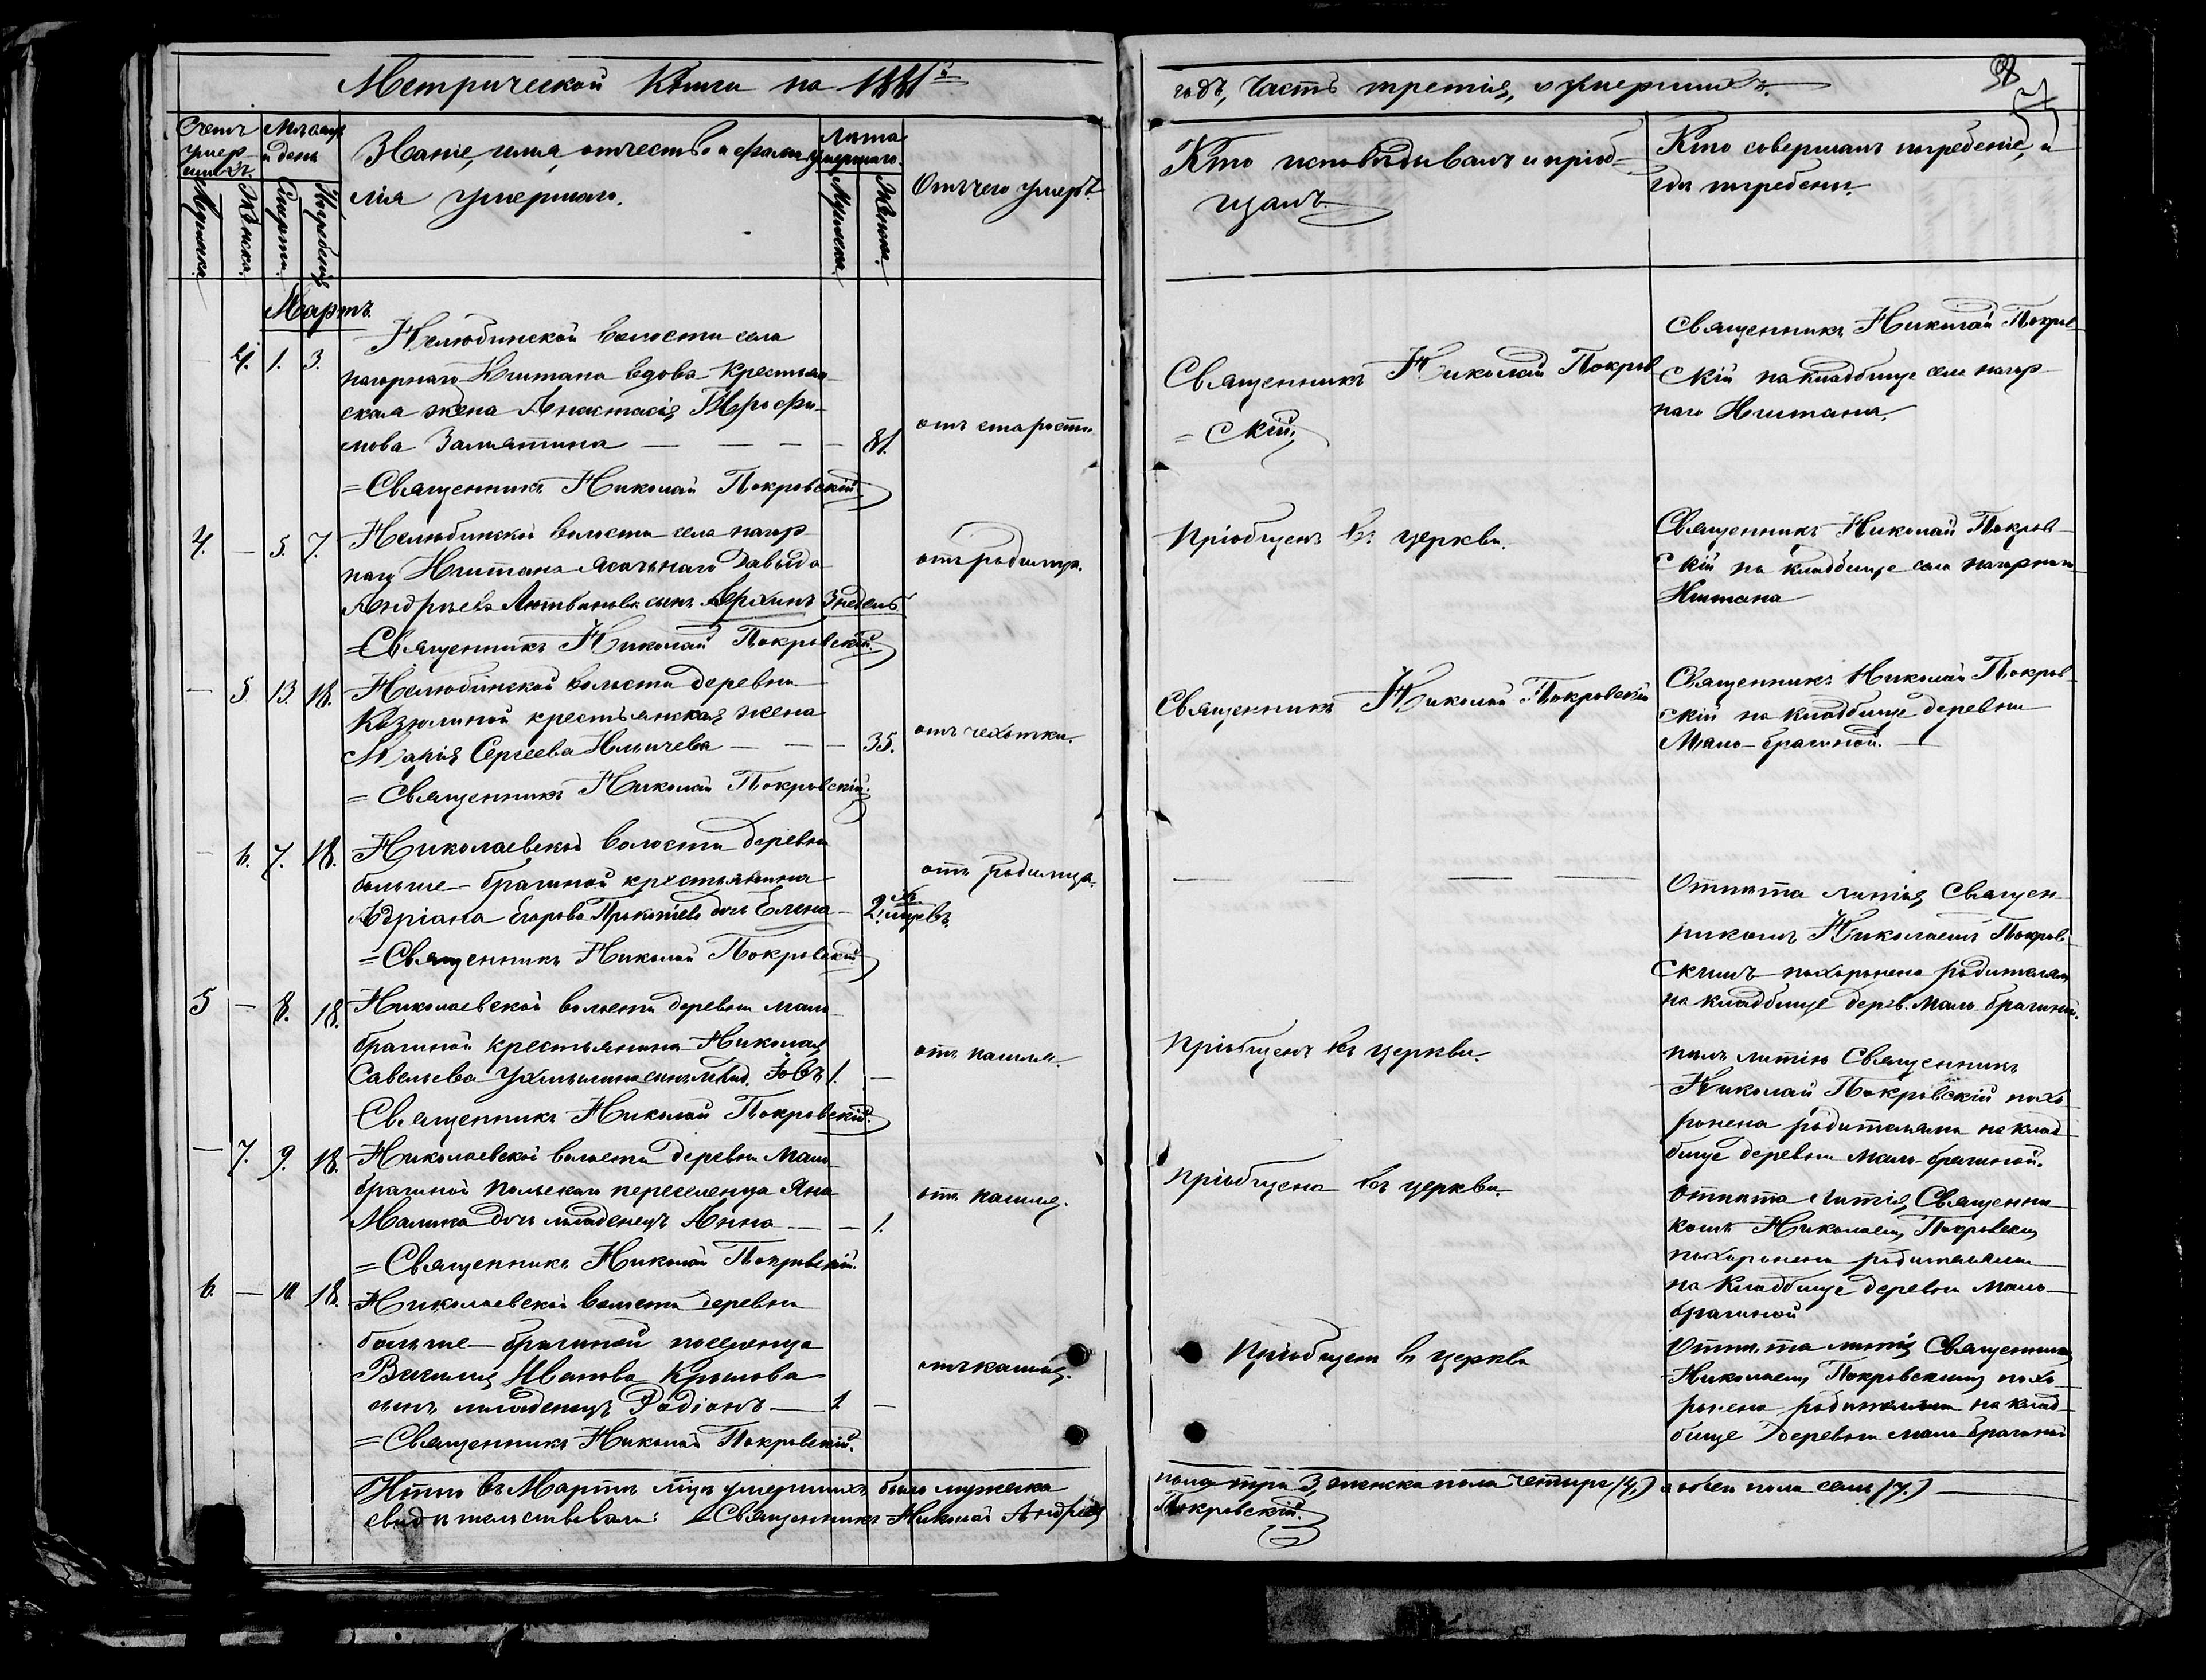 Метрической Книги на 1881й
годъ, Часть третія, о умершихъ.
Счетъ умер-
шихъ.
Мѣсяцъ
и день
Званіе, имя, отчество и фами-
лія умершаго.
Лѣта
умершаго.
Отъ чего умеръ.
Кто исповѣдывалъ и пріоб-
щалъ.
Кто совершалъ погребеніе, и
гдѣ погребены.
Мужеска.
Женска.
Смерти.
Погребенія
Мужеска.
Женска.
Мартъ.
4. 1. 3.
Нелюбинской волости села
нагорнаго Иштана вдова крестьян-
ская жена Анастасія
Замятина
81.
отъ старости.
=Священникъ Николай Покровскій.
Священникъ Николай Покров
=скій.
Священникъ Николай Покров-
скій на кладбище села нагор-
наго Иштана.
4. — 5. 7.
Нелюбинской волости села нагор-
наго Иштана ясачнаго Давыда
Андреева Литвинова сынъ
3 недель
отъ родимца.
=Священникъ Николай Покровскій.
Пріобщенъ въ церкви.
Священникъ Николай Покров-
скій на кладбище села нагорнаго
Иштана
— 5 13. 18.
Нелюбинской волости деревни
Козюлиной крестьянская жена
Марія Сергеева
35.
отъ чехотки.
= Священникъ Николай Покровскій.
Священникъ Николай Покровскій
Священникъ Николай Покров-
скій на кладбище деревни
Мало-брагиной.
— 6. 7. 18.
Николаевской волости деревни
больше-брагиной крестьянина
Адріана Егорова дочь Елена
2.
отъ родимца.
=Священникъ Николай Покровскій
Отпѣта литія Священ-
никомъ Николаемъ Покров-
скимъ похоронена родителями
на кладбище дерев. Мало-брагиной.
5 — 8. 18.
Николаевской волости деревни мало-
брагиной крестьянина Николая
Савельева сынъ млад. Іовъ
1. —
отъ кашля.
Священникъ Николай Покровскій.
Пріобщенъ въ церкви.
пѣлъ литію Священникъ
Николай Покровскій похо-
ронена родителями на клад-
бище деревни мало-брагиной.
— 7. 9. 18.
Николаевской волости деревни мало-
брагиной польскаго переселенца Яна
Малика дочь младенецъ Анна
— 1.
отъ кашля.
=Священникъ Николай Покровскій.
Пріобщена въ церкви.
отпѣта литія Священни-
комъ Николаемъ Покровскимъ
похоронена родителями
на кладбище деревни мало-
брагиной
6. — 10. 18.
Николаевской волости деревни
больше-брагиной поселенца
Василія Иванова Крылова
сынъ младенецъ Родіонъ
1. —
отъ кашля.
=Священникъ Николай Покровскій.
Пріобщенъ въ церкви
Отпѣта литія Священникомъ
Николаемъ Покровскимъ похо-
ронена родителями на клад-
бище деревни мало-брагиной
Итого въ Мартѣ мцѣ умершихъ было мужеска
пола три 3, женска пола четыре (4,) а обоего пола семь (7.)
свидѣтельствовали: Священникъ Николай Андреевъ
Покровскій.